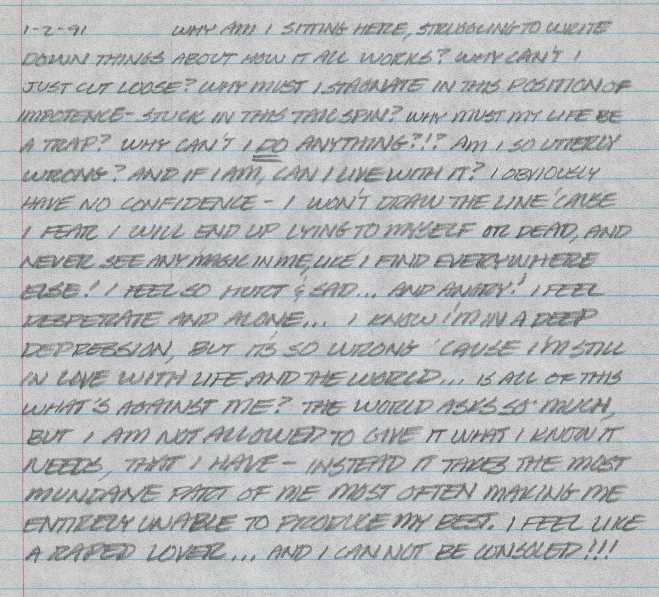 1-2-91 WHY AM I SITTING HERE, STRUGGLING TO WRITE
DOWN THINGS ABOUT HOW IT ALL WORKS? WHY CAN'T I
JUST CUT LOOSE? WHY MUST I STAGNATE IN THIS POSITION OF
IMPOTENCE - STUCK IN THIS TAILSPIN? WHY MUST MY LIFE BE
A TRAP? WHY CAN'T I DO ANYTHING?!? AM I SO UTTERLY
WRONG? AND IF I AM, CAN I LIVE WITH IT? I OBVIOUSLY
HAVE NO CONFIDENCE - I WON'T DRAW THE LINE 'CAUSE
I FEAR I WILL END UP LYING TO MYSELF OR DEAD, AND
NEVER SEE ANY MAGIC IN ME, LIKE I FIND EVERYWHERE
ELSE! I FEEL SO HURT & SAD... AND ANGRY! I FEEL
DESPERATE AND ALONE... I KNOW I'M IN A DEEP
DEPRESSION, BUT IT'S SO WRONG 'CAUSE I'M STILL
IN LOVE WITH LIFE AND THE WORLD... IS ALL OF THIS
WHAT'S AGAINST ME? THE WORLD ASKS SO MUCH,
BUT I AM NOT ALLOWED TO GIVE IT WHAT I KNOW IT
NEEDS, THAT I HAVE - INSTEAD IT TAKES THE MOST
MUNDANE PART OF ME MOST OFTEN MAKING ME
ENTIRELY UNABLE TO PRODUCE MY BEST. I FEEL LIKE
A RAPED LOVER... AND I CAN NOT BE CONSOLED!!!